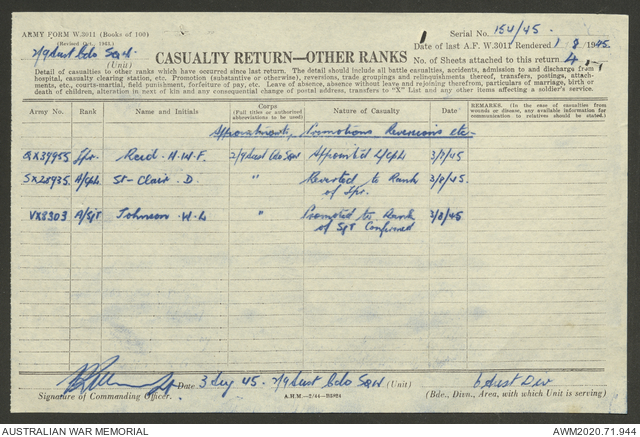 ARMY FORM W.3011 (Books of 100)
(Revised Oct., 1943.)
Serial No. 154/45.
2/9 Aust Cdo Sqn
(Unit)
CASUALTY RETURN—OTHER RANKS
Date of last A.F. W.3011 Rendered 1 8 1945
No. of Sheets attached to this return. 4
Detail of casualties to other ranks which have occurred since last return. The detail should include all battle casualties, accidents, admission to and discharge from
hospital, casualty clearing station, etc. Promotion (substantive or otherwise), reversions, trade groupings and relinquishments thereof, transfers, postings, attach-
ments, etc., courts-martial, field punishment, forfeiture of pay, etc. Leave of absence, absence without leave and rejoining therefrom, particulars of marriage, birth or
death of children, alteration in next of kin and any consequential change of postal address, transfers to "X" List and any other items affecting a soldier's service.
Army No. Rank Name and Initials Corps (Full titles or authorized abbreviations to be used) Nature of Casualty Date REMARKS. (In the case of casualties from wounds or disease, any available information for communication to relatives should be stated.)
Appointments, Promotions Reversions etc
QX39955 Tpr. Reid. H.W.F. 2/9 Aust Cdo Sqn Appointed L/Cpl 3/8/45
SX28935 A/Cpl St-Clair. D. " Reverted to Rank 3/8/45.
of Tpr.
VX8303 A/Sgt Johnson. W.L " Promoted to Rank 3/8/45
of Sgt Confirmed
Date 3 Aug 45. 2/9 Aust Cdo Sqn (Unit) 6 Aust Div
Signature of Commanding Officer. A.H.M.—2/44— (Bde., Divn., Area, with which Unit is serving)
AUSTRALIAN WAR MEMORIAL
AWM2020.71.944